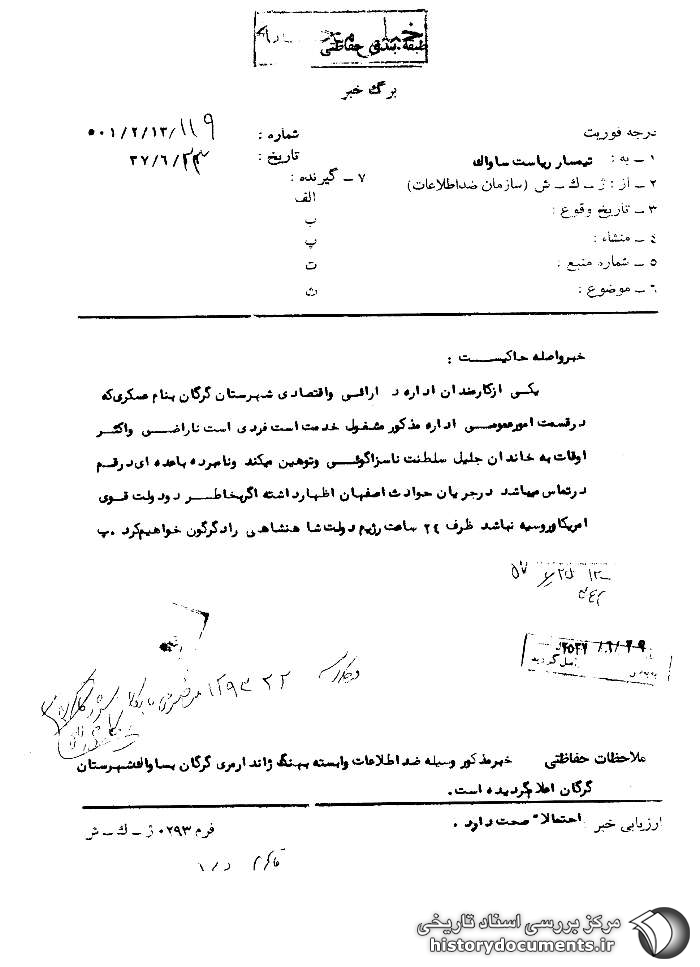 طبقه بندی حفاظتی
برگ خبر
درجه فوریت
شماره : ۵۰۱/۲/۱۳/۱۱۹
۱ – به : تیمسار ریاست ساواک
تاریخ : ۳۷/۶/۲۳
۲ – از : ژ – ک – ش (سازمان ضداطلاعات)
۷ – گیرنده :
۳ – تاریخ وقوع :
الف
ب
۴ – منشاء :
پ
۵ – شماره منبع :
ت
۶ – موضوع :
ث
خبرواصله حاکیست :
یکی ازکارمندان اداره دارائی واقتصادی شهرستان گرگان بنام عسکری که
درقسمت امورعمومی اداره مذکور مشغول خدمت است فردی است ناراضی واکثر
اوقات به خاندان جلیل سلطنت ناسزاگوئی وتوهین میکند ونامبرده باعده ای درقم
درتماس میباشد درجریان حوادث اصفهان اظهارداشته اگربخاطر دودولت قوی
امریکاوروسیه نباشد ظرف ۲۴ ساعت رژیم دولت شاهنشاهی رادگرگون خواهیم کرد .پ
ملاحظات حفاظتی خبرمذکور وسیله ضداطلاعات وابسته بهنگ ژاندارمری گرگان بساواک شهرستان
گرگان اعلام گردیده است .
ارزیابی خبر : احتمالاً صحت دارد .
فرم ۰۲۹۳ ژ – ک – ش
مرکز بررسی اسناد تاریخی
historydocuments.ir